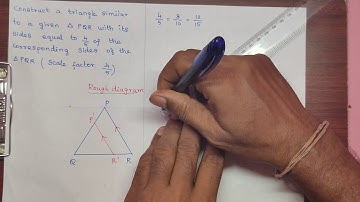 Construct a triangle similar
to a given △ PQR with its
sides equal to 4/5 of the
corresponding sides of the
△ PQR ( Scale factor 4/5 )
4/5 = 8/10 = 12/15
Rough diagram
P
P'
Q
R'
R